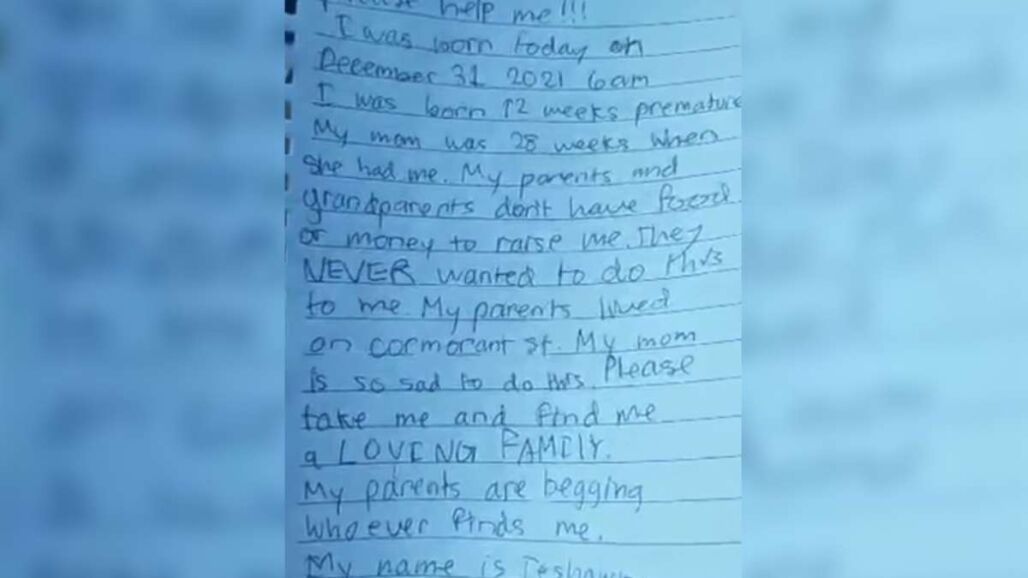 help me!!!
I was born today on
December 31 2021 6am
I was born 12 weeks premature
My mom was 28 weeks when
she had me. My parents and
grandparents dont have food
or money to raise me. They
NEVER wanted to do this
to me. My parents lived
on cormorant st. My mom
is so sad to do this. Please
take me and find me
a LOVING FAMILY.
My parents are begging
whoever finds me.
My name is